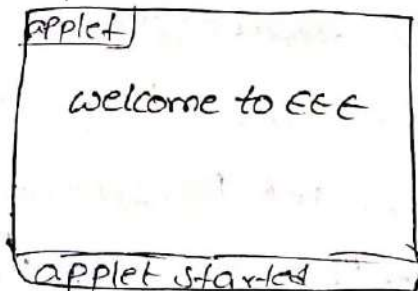 applet
welcome to EEE
applet started